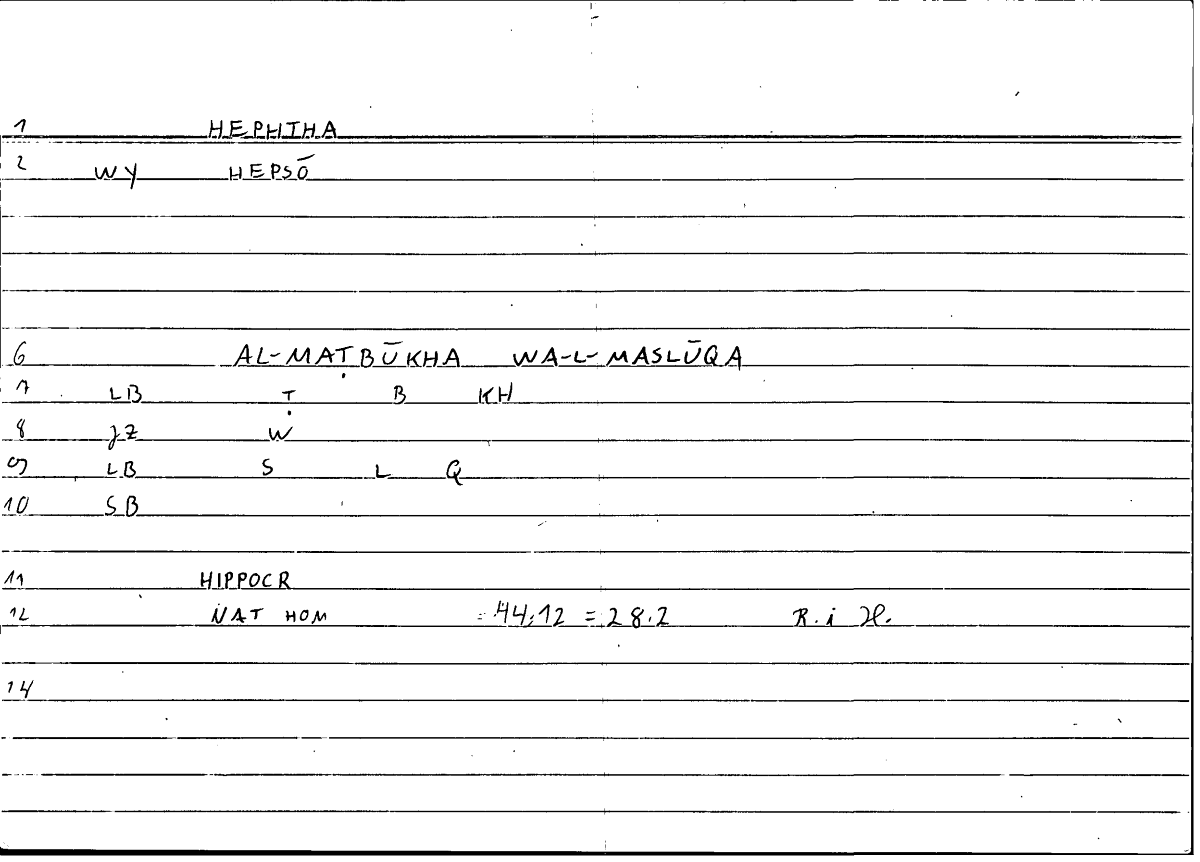 1 HEPHTHA
2 WY HEPSŌ
6 AL-MAṬBŪKHA WA-L-MASLŪQA
7 LB Ṭ B KH
8 JZ W
9 LB S L Q
10 SB
11 HIPPOCR
12 NAT HOM = 44,12 = 28.2 R. i H.
14